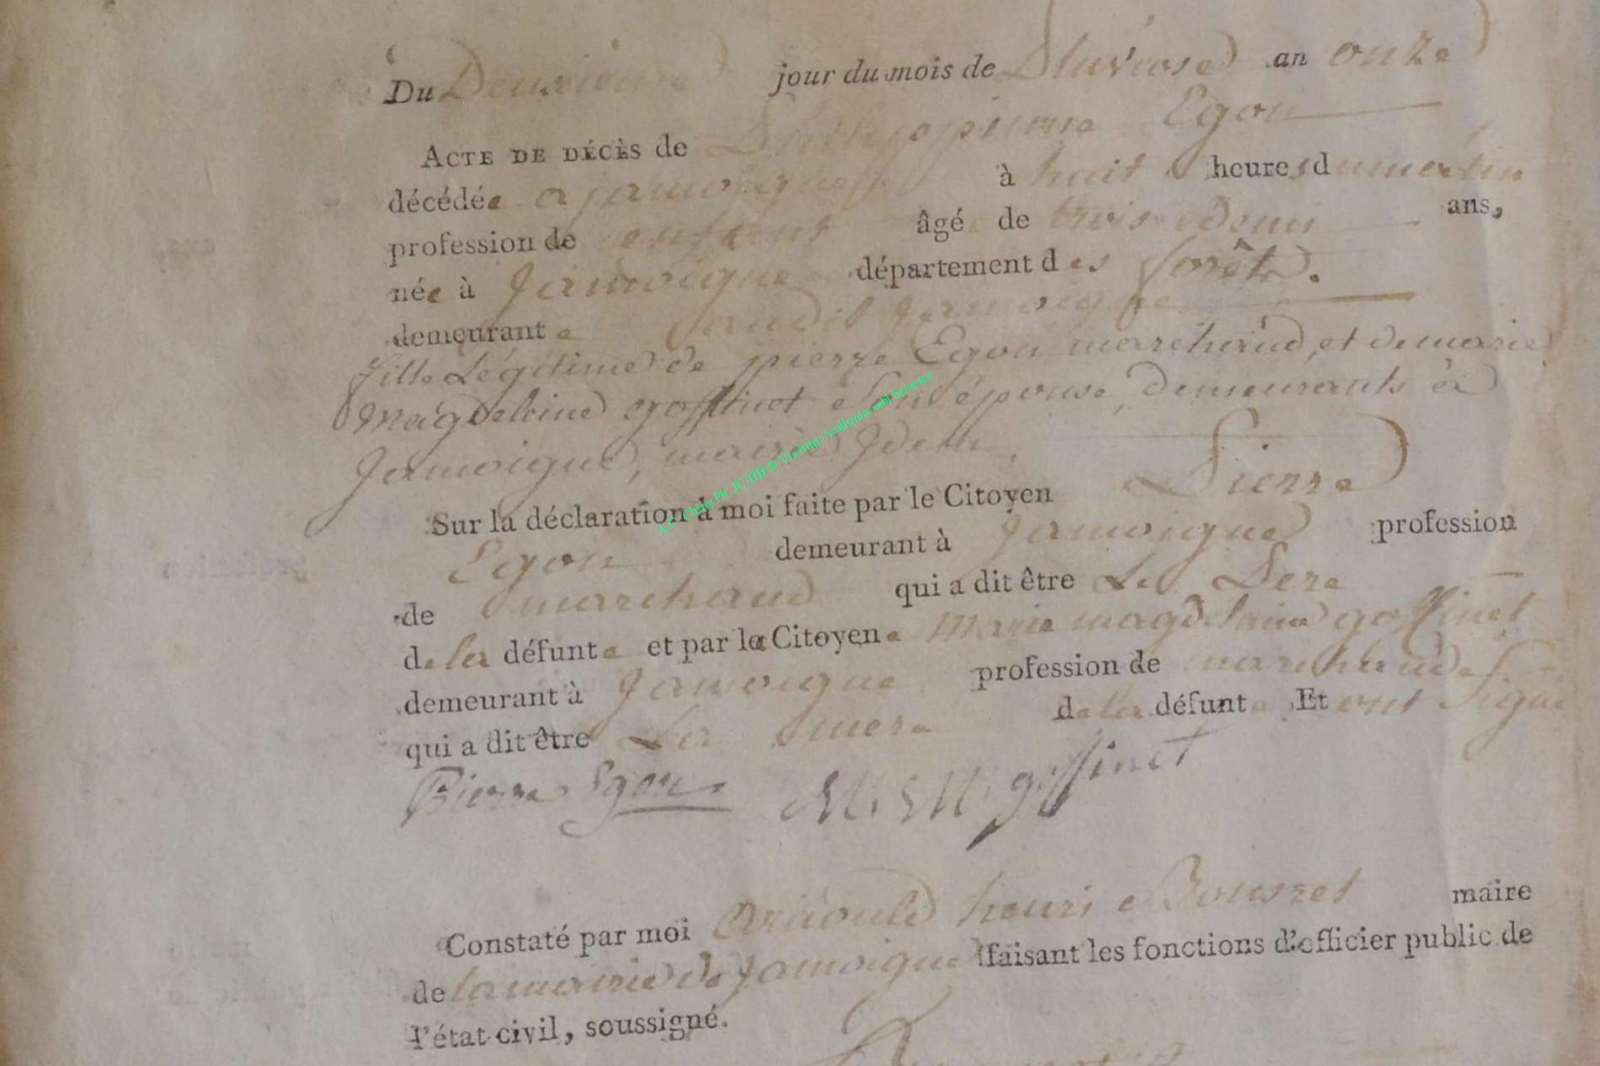 Du Deuxieme jour du mois de Pluviose an onze
ACTE DE DÉCÈS de Egon
décédée a jamoigne à huit heures du matin
profession de enfant âgé de trois & demi ans,
née à Jamoigne département des forêts.
demeurante audit Jamoigne
fille Légitime de pierre Egon marchand, et de marie
Magdeleine goffinet Son épouse, demeurants à
Jamoigne, mairie Idem.
Sur la déclaration à moi faite par le Citoyen Pierre
Egon demeurant à Jamoigne profession
de marchand qui a dit être Le Pere
de la défunte et par la Citoyene Marie magdelaine goffinet
demeurant à Jamoigne profession de marchande
qui a dit être La mere de la défunte Et ont Signé
Pierre Egon M: M: goffinet
Constaté par moi henri maire
de la mairie de Jamoigne faisant les fonctions d'officier public de
l'état civil, soussigné.